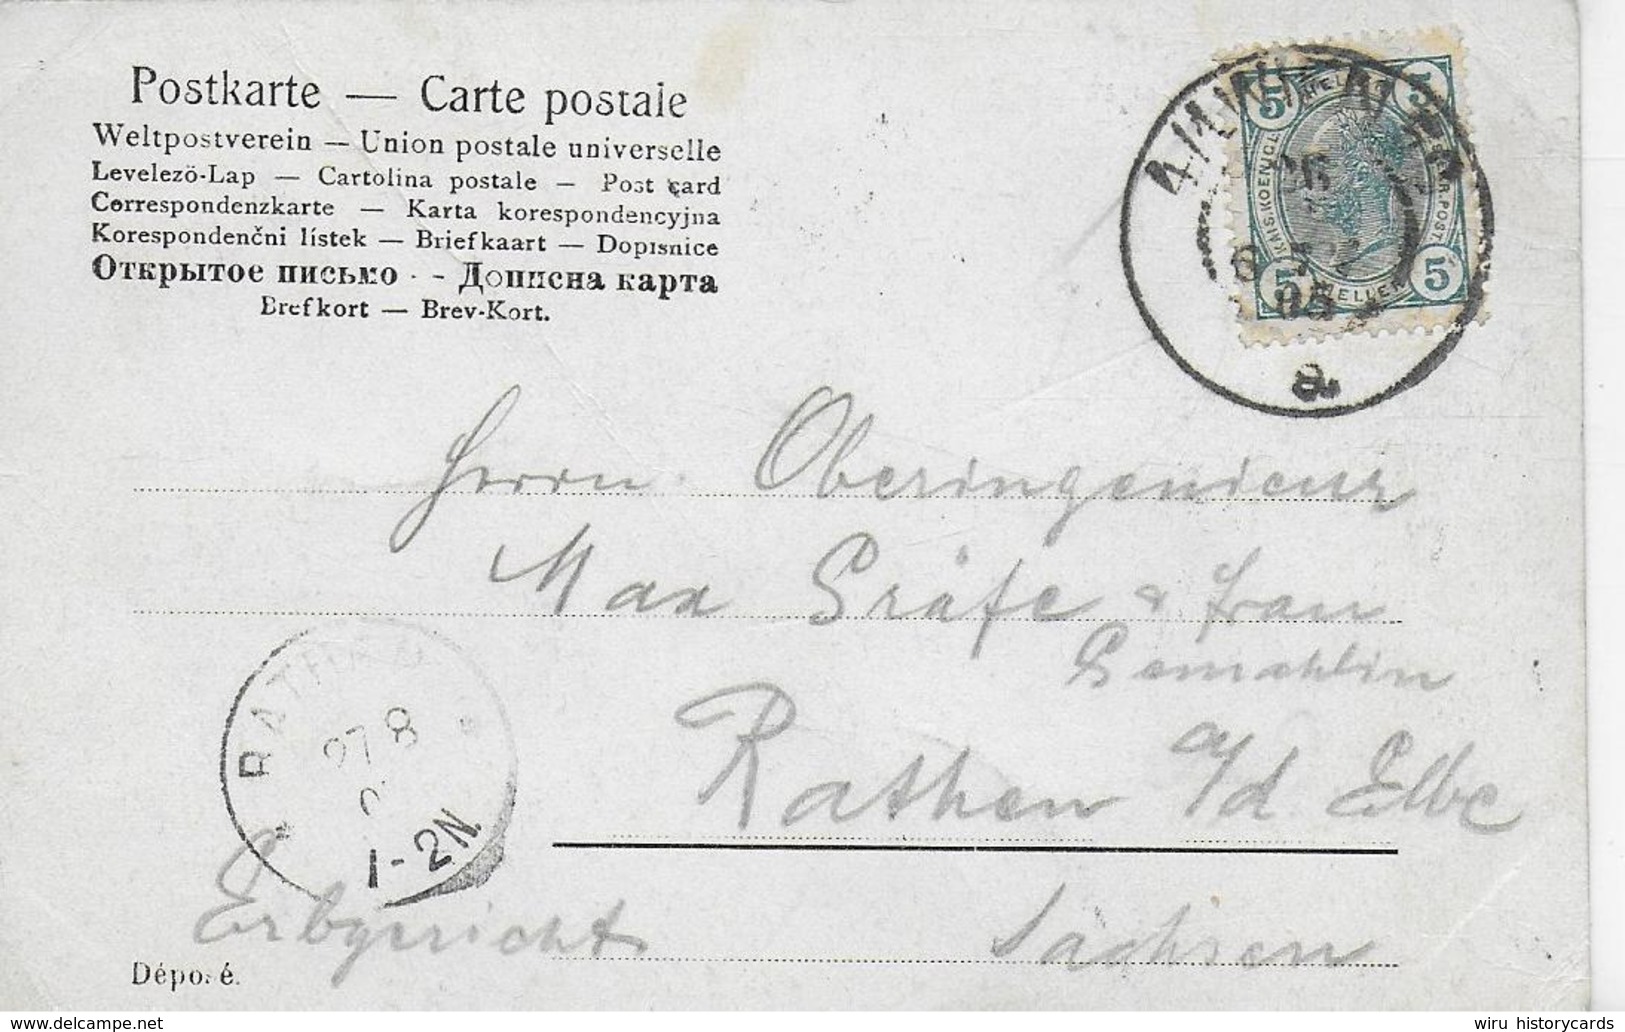 Postkarte — Carte postale
Weltpostverein — Union postale universelle
Levelező-Lap — Cartolina postale — Post card
Correspondenzkarte — Karta korespondencyjna
Korespondenčni lístek — Briefkaart — Dopisnice
Открытое письмо - Дописна карта
Brefkort — Brev-Kort.
5 HELLER 5
KAIS.KOENIGL. ÖSTERR.POST
5 HELLER 5
26
05
a
Herrn Oberingenieur
Max Gräfe & Frau
Gemahlin
Rathen a/d Elbe
RATHEN
27 8
1-2N.
Erbgericht Sachsen
Déposé.
www.delcampe.net
wiru historycards